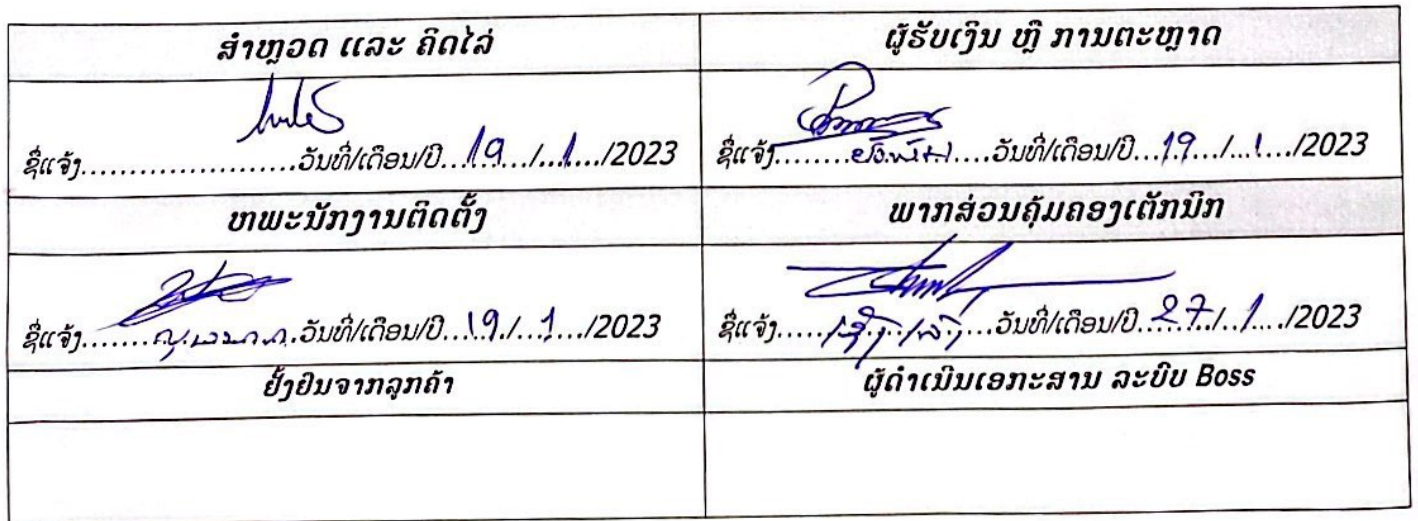 ສຳຫຼວດ ແລະ ຄິດໄລ່
ຜູ້ຮັບເງິນ ຫຼື ການຕະຫຼາດ
ຊື່ແຈ້ງ......................ວັນທີ່/ເດືອນ/ປີ...19.../...1.../2023
ຊື່ແຈ້ງ..............ວັນທີ່/ເດືອນ/ປີ...19.../...1.../2023
ຫພະນັກງານຕິດຕັ້ງ
ພາກສ່ວນຄຸ້ມຄອງເຕັກນິກ
ຊື່ແຈ້ງ..............ວັນທີ່/ເດືອນ/ປີ..19./...1.../2023
ຊື່ແຈ້ງ..............ວັນທີ່/ເດືອນ/ປີ..27./..1.../2023
ຢັ້ງຢືນຈາກລູກຄ້າ
ຜູ້ດຳເນີນເອກະສານ ລະບົບ Boss